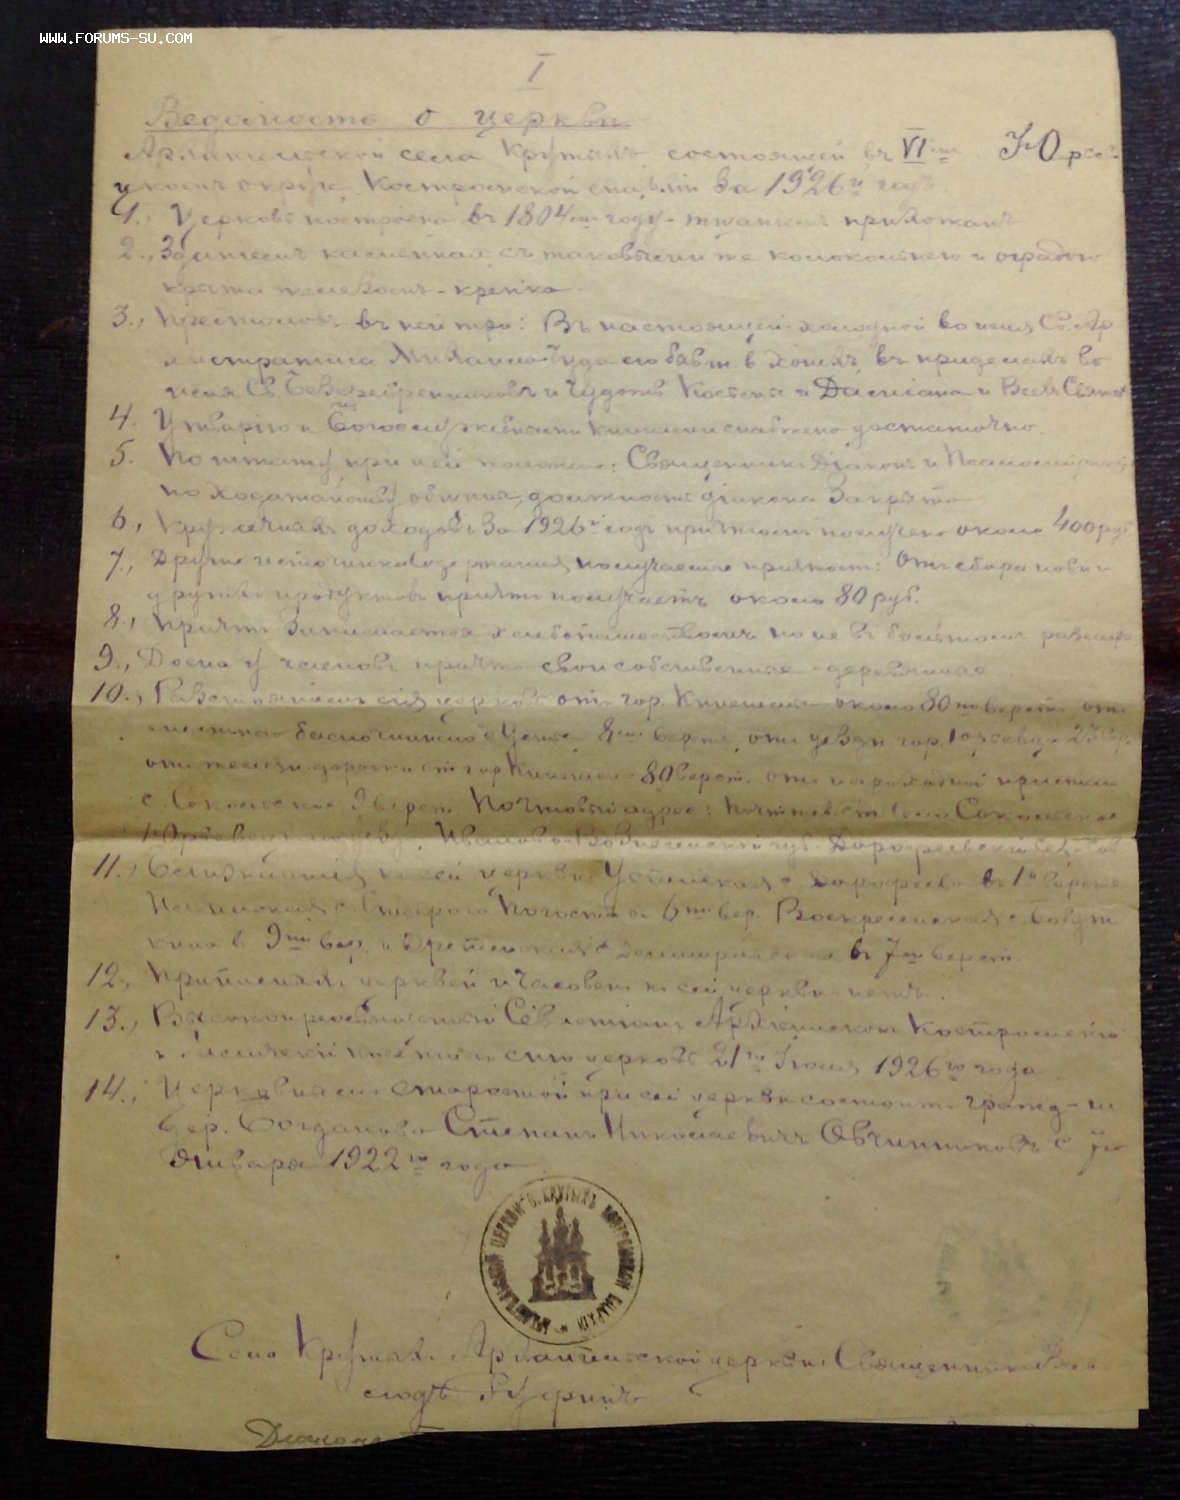 WWW.FORUMS-SU.COM
I
Ведомость о церкви
Архангельской села Крутыхъ, состоящей въ VI мъ Юрье
округе, Костромской епархіи за 1926 й годъ.
1., Церковь построена въ 1804 мъ году - тщаніемъ прихожанъ
2., Зданіемъ каменная, съ таковыми же колокольнею и оградою
крыта железомъ - крепка.
3., Престоловъ въ ней три: Въ настоящей холодной во имя Св. Ар-
хистратига Михаила Чуда его бывш. в Хонехъ, въ приделахъ во
имя Св. Безсребренниковъ и Чудотв. Космы и Даміана и Всехъ Святыхъ
4. Утварью и Богослужебными книгами снабжена достаточно.
5. По штату при ней положено: Священникъ Діаконъ и Псаломщикъ,
по ходатайству общины, должность діакона закрыта
6., Кружечныхъ доходовъ за 1926 й годъ причтомъ получено около 400 руб.
7., Другие источники содержания получаемые причтом: Отъ сбора нови и
другихъ продуктовъ причтъ получаетъ около 80 руб.
8., Причтъ занимается хлебопашествомъ но не въ большомъ размере
9., Дома у членовъ причта свои собственные - деревянные
10., Разстояніемъ сія церковь отъ гор. Кинешмы около 80 ти верстъ, отъ
местного благочинного с. 8 ми верстъ, отъ уездн. гор. Юрьевца 25 вер.
отъ железн. дороги ст. гор. Кинешма 80 верст. отъ пароходной пристани
с. Сокольское 9 верст. Почтовый адрес: Почтовое отд. село Сокольское
Юрьевецкого у., Иваново-Вознесенской губ. Дорофеевский сел. Сов.
11., Ближайшия къ сей церкви: Успенская с. Дорофеево въ 1 й версте
с. Старого Погоста въ 6 ти вер. Воскресенская с.
в 9 ти вер. и въ 7 ми верст.
12., Приписныхъ церквей и часовень къ сей церкви - нетъ.
13., Высокопреосвященный Севастіанъ Архіепископъ Костромскій
и Галичскій посетилъ сию церковь 21 го Іюня 1926 го года
14., Церковнымъ старостой при сей церкви состоитъ гражд-нъ
дер. Богданово Степанъ Николаевичъ Овчинниковъ с
Января 1922 го года
АРХАНГЕЛЬСКОЙ ЦЕРКВИ С. КРУТЫХЪ КОСТРОМСКОЙ ЕПАРХІИ
Село Крутыхъ Архангельской церкви: Священникъ
Діаконъ